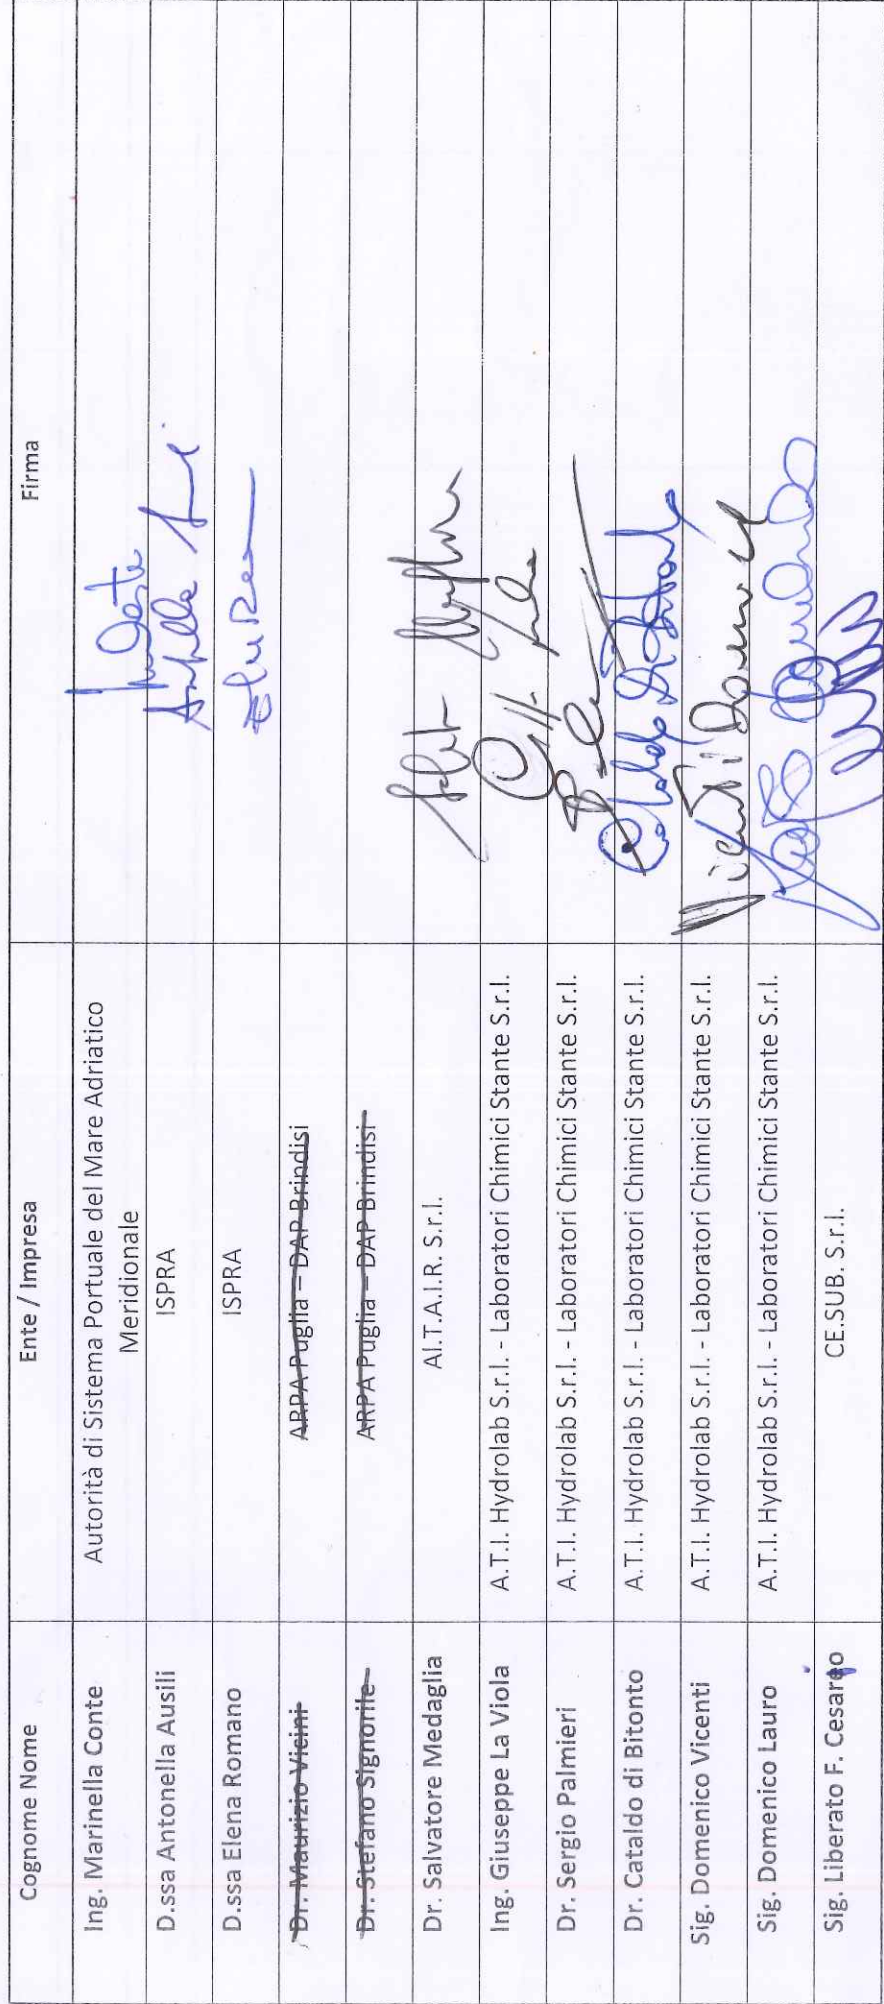 Cognome Nome Ente / Impresa Firma
Ing. Marinella Conte Autorità di Sistema Portuale del Mare Adriatico
Meridionale
D.ssa Antonella Ausili ISPRA
D.ssa Elena Romano ISPRA
Dr. Maurizio Vicini ARPA Puglia – DAP Brindisi
Dr. Stefano Signorile ARPA Puglia – DAP Brindisi
Dr. Salvatore Medaglia AI.T.A.I.R. S.r.l.
Ing. Giuseppe La Viola A.T.I. Hydrolab S.r.l. - Laboratori Chimici Stante S.r.l.
Dr. Sergio Palmieri A.T.I. Hydrolab S.r.l. - Laboratori Chimici Stante S.r.l.
Dr. Cataldo di Bitonto A.T.I. Hydrolab S.r.l. - Laboratori Chimici Stante S.r.l. Cataldo Di Bitonto
Sig. Domenico Vicenti A.T.I. Hydrolab S.r.l. - Laboratori Chimici Stante S.r.l. Vicenti Domenico
Sig. Domenico Lauro A.T.I. Hydrolab S.r.l. - Laboratori Chimici Stante S.r.l.
Sig. Liberato F. Cesareo CE.SUB. S.r.l.